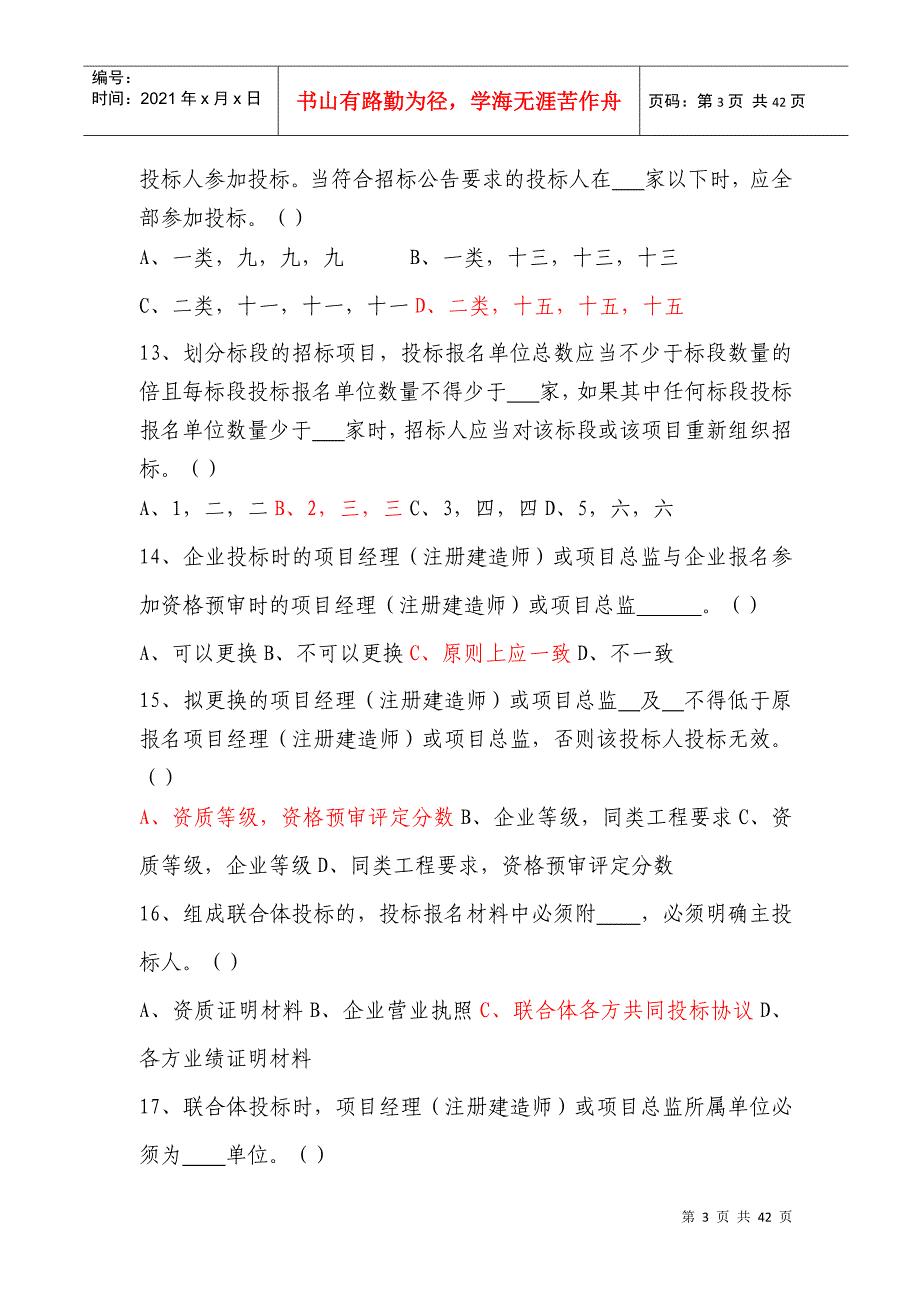 编号：
时间：2021年x月x日
书山有路勤为径，学海无涯苦作舟
页码：第3页 共42页
投标人参加投标。当符合招标公告要求的投标人在___家以下时，应全
部参加投标。（）
A、一类，九，九，九 B、一类，十三，十三，十三
C、二类，十一，十一，十一 D、二类，十五，十五，十五
13、划分标段的招标项目，投标报名单位总数应当不少于标段数量的
倍且每标段投标报名单位数量不得少于___家，如果其中任何标段投标
报名单位数量少于___家时，招标人应当对该标段或该项目重新组织招
标。（）
A、1，二，二 B、2，三，三 C、3，四，四 D、5，六，六
14、企业投标时的项目经理（注册建造师）或项目总监与企业报名参
加资格预审时的项目经理（注册建造师）或项目总监______。（）
A、可以更换 B、不可以更换 C、原则上应一致 D、不一致
15、拟更换的项目经理（注册建造师）或项目总监__及__不得低于原
报名项目经理（注册建造师）或项目总监，否则该投标人投标无效。
（）
A、资质等级，资格预审评定分数 B、企业等级，同类工程要求 C、资
质等级，企业等级 D、同类工程要求，资格预审评定分数
16、组成联合体投标的，投标报名材料中必须附____，必须明确主投
标人。（）
A、资质证明材料 B、企业营业执照 C、联合体各方共同投标协议 D、
各方业绩证明材料
17、联合体投标时，项目经理（注册建造师）或项目总监所属单位必
须为____单位。（）
第 3 页 共 42 页